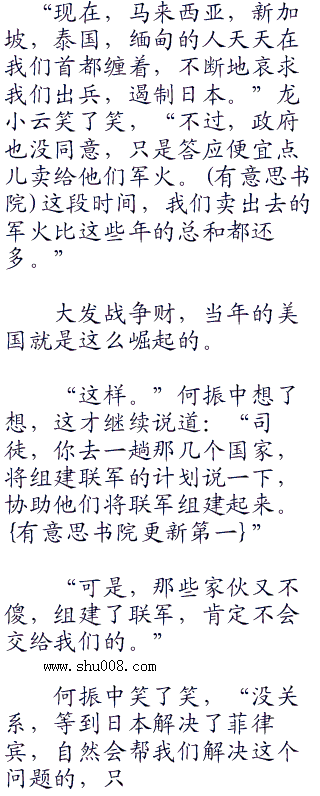 “现在，马来西亚，新加
坡，泰国，缅甸的人天天在
我们首都缠着，不断地哀求
我们出兵，遏制日本。”龙
小云笑了笑，“不过，政府
也没同意，只是答应便宜点
儿卖给他们军火。(有意思书
院)这段时间，我们卖出去的
军火比这些年的总和都还
多。”
大发战争财，当年的美
国就是这么崛起的。
“这样。”何振中想了
想，这才继续说道：“司
徒，你去一趟那几个国家，
将组建联军的计划说一下，
协助他们将联军组建起来。
{有意思书院更新第一}”
“可是，那些家伙又不
傻，组建了联军，肯定不会
交给我们的。”
www.shu008.com
何振中笑了笑，“没关
系，等到日本解决了菲律
宾，自然会帮我们解决这个
问题的，只